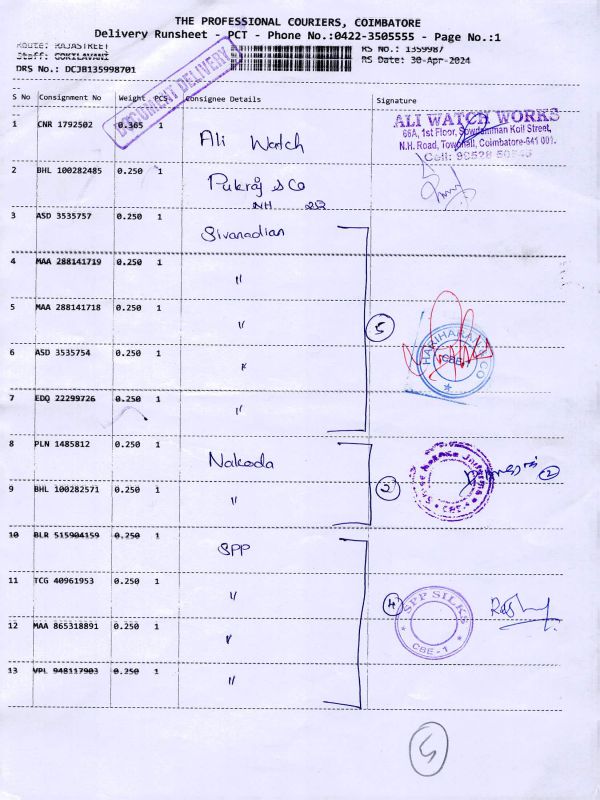 THE PROFESSIONAL COURIERS, COIMBATORE
Delivery Runsheet - PCT - Phone No.:0422-3505555 - Page No.:1
Route: RAJASTREET
RS No.: 1359987
Staff: GOKILAVANI
RS Date: 30-Apr-2024
DRS No.: DCJB135998701
DOCUMENT DELIVERY
S No Consignment No Weight PCS Consignee Details Signature
1 CNR 1792502 0.365 1 Ali Watch
ALI WATCH WORKS
66A, 1st Floor, Sowdamman Koil Street,
N.H. Road, Townhall, Coimbatore-641 001.
Cell: 98528
2 BHL 100282485 0.250 1 Pukraj & Co
NH
3 ASD 3535757 0.250 1 Sivanadian
4 MAA 288141719 0.250 1 "
5 MAA 288141718 0.250 1 "
5
HARIHARAN & CO
CBE
6 ASD 3535754 0.250 1 "
7 EDQ 22299726 0.250 1 "
8 PLN 1485812 0.250 1 Nakoda
2
CBE
2
9 BHL 100282571 0.250 1 "
10 BLR 515904159 0.250 1 SPP
11 TCG 40961953 0.250 1 "
4
SPP SILKS
CBE - 1
12 MAA 865318891 0.250 1 "
13 VPL 948117903 0.250 1 "
5